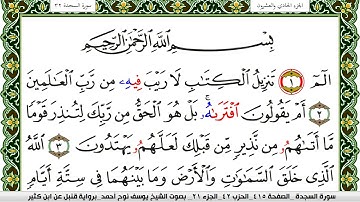 الجزء الحادي والعشرون سورة السجدة ٣٢
بِسْمِ ٱللَّهِ ٱلرَّحْمَٰنِ ٱلرَّحِيمِ
الٓمٓ ١ تَنزِيلُ ٱلْكِتَٰبِ لَا رَيْبَ فِيهِۦ مِن رَّبِّ ٱلْعَٰلَمِينَ
٢ أَمْ يَقُولُونَ ٱفْتَرَىٰهُۥۚ بَلْ هُوَ ٱلْحَقُّ مِن رَّبِّكَ لِتُنذِرَ قَوْمًا
مَّآ أَتَىٰهُمُۥ مِن نَّذِيرٍ مِّن قَبْلِكَ لَعَلَّهُمُۥ يَهْتَدُونَ ٣ ٱللَّهُ
ٱلَّذِى خَلَقَ ٱلسَّمَٰوَٰتِ وَٱلْأَرْضَ وَمَا بَيْنَهُمَا فِى سِتَّةِ أَيَّامٍ
سورة السجدة . الصفحة ٤١٥ . الحزب ٤٢ . الجزء ٢١ . بصوت الشيخ يوسف نوح أحمد . برواية قنبل عن ابن كثير